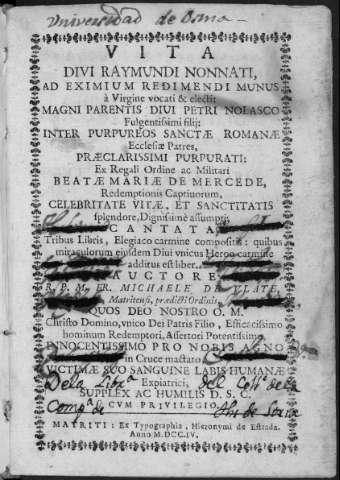 Universidad de Osma
VITA
DIVI RAYMUNDI NONNATI,
AD EXIMIUM REDIMENDI MUNUS
à Virgine vocati & electi:
MAGNI PARENTIS DIVI PETRI NOLASCO
Fulgentissimi filij:
INTER PURPUREOS SANCTÆ ROMANÆ
Ecclesiæ Patres,
PRÆCLARISSIMI PURPURATI:
Ex Regali Ordine ac Militari
BEATÆ MARIÆ DE MERCEDE,
Redemptionis Captivorum,
CELEBRITATE VITÆ, ET SANCTITATIS
splendore, Dignissimè assumpti;
CANTATA
Tribus Libris, Elegiaco carmine compositis: quibus
miraculorum eiusdem Divi vnicus Heroo carmine
additus est liber.
AUCTORE
R. P. M. FR. MICHAELE DE VLATE,
Matritensi, prædicti Ordinis,
QUOS DEO NOSTRO O. M.
Christo Domino, vnico Dei Patris Filio, Efficacissimo
hominum Redemptori, Assertori Potentissimo
INNOCENTISSIMO PRO NOBIS AGNO
in Cruce mactato
VICTIMÆ SUO SANGUINE LABIS HUMANÆ
De la Libra Expiatrici, del Collo de la
SUPPLEX AC HUMILIS D. S. C.
Compa de CVM PRIVILEGIO
MATRITI: Ex Typographia, Hieronymi de Estrada.
Anno M.DCC.IV.